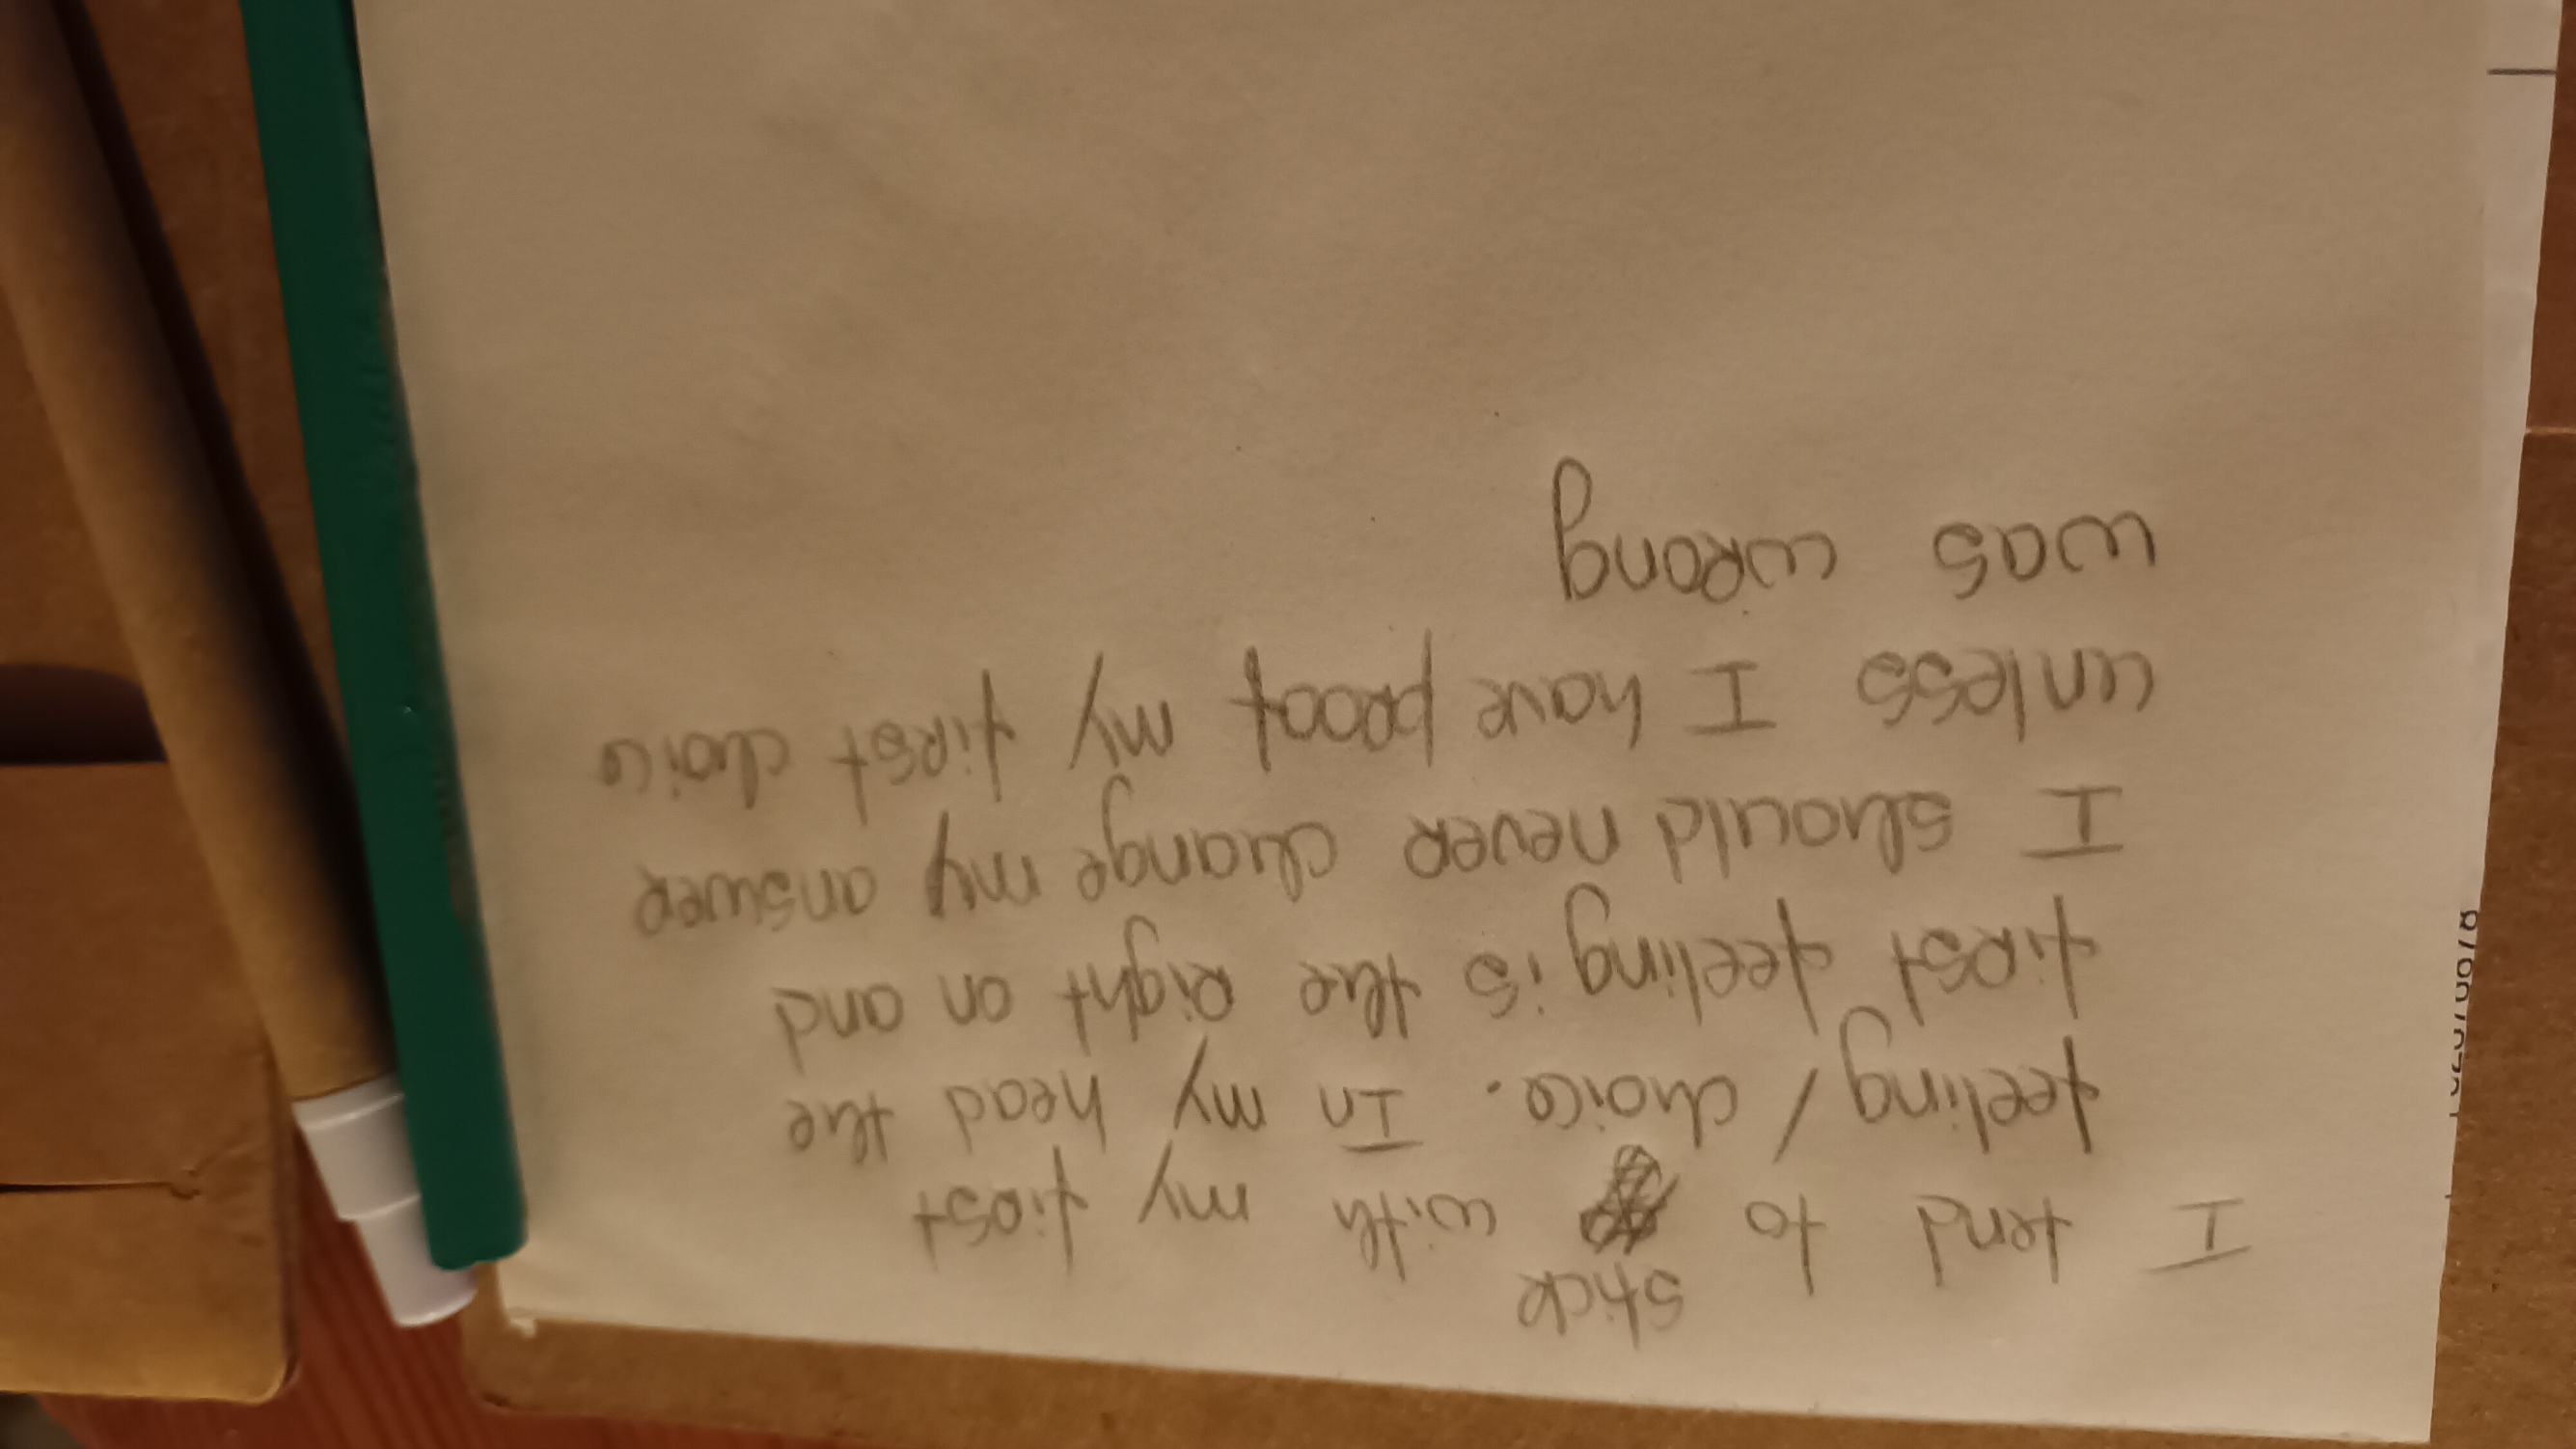 I tend to stick with my first
feeling / choice. In my head the
first feeling is the Right on and
I should never change my answer
unless I have proof my first choice
was wrong